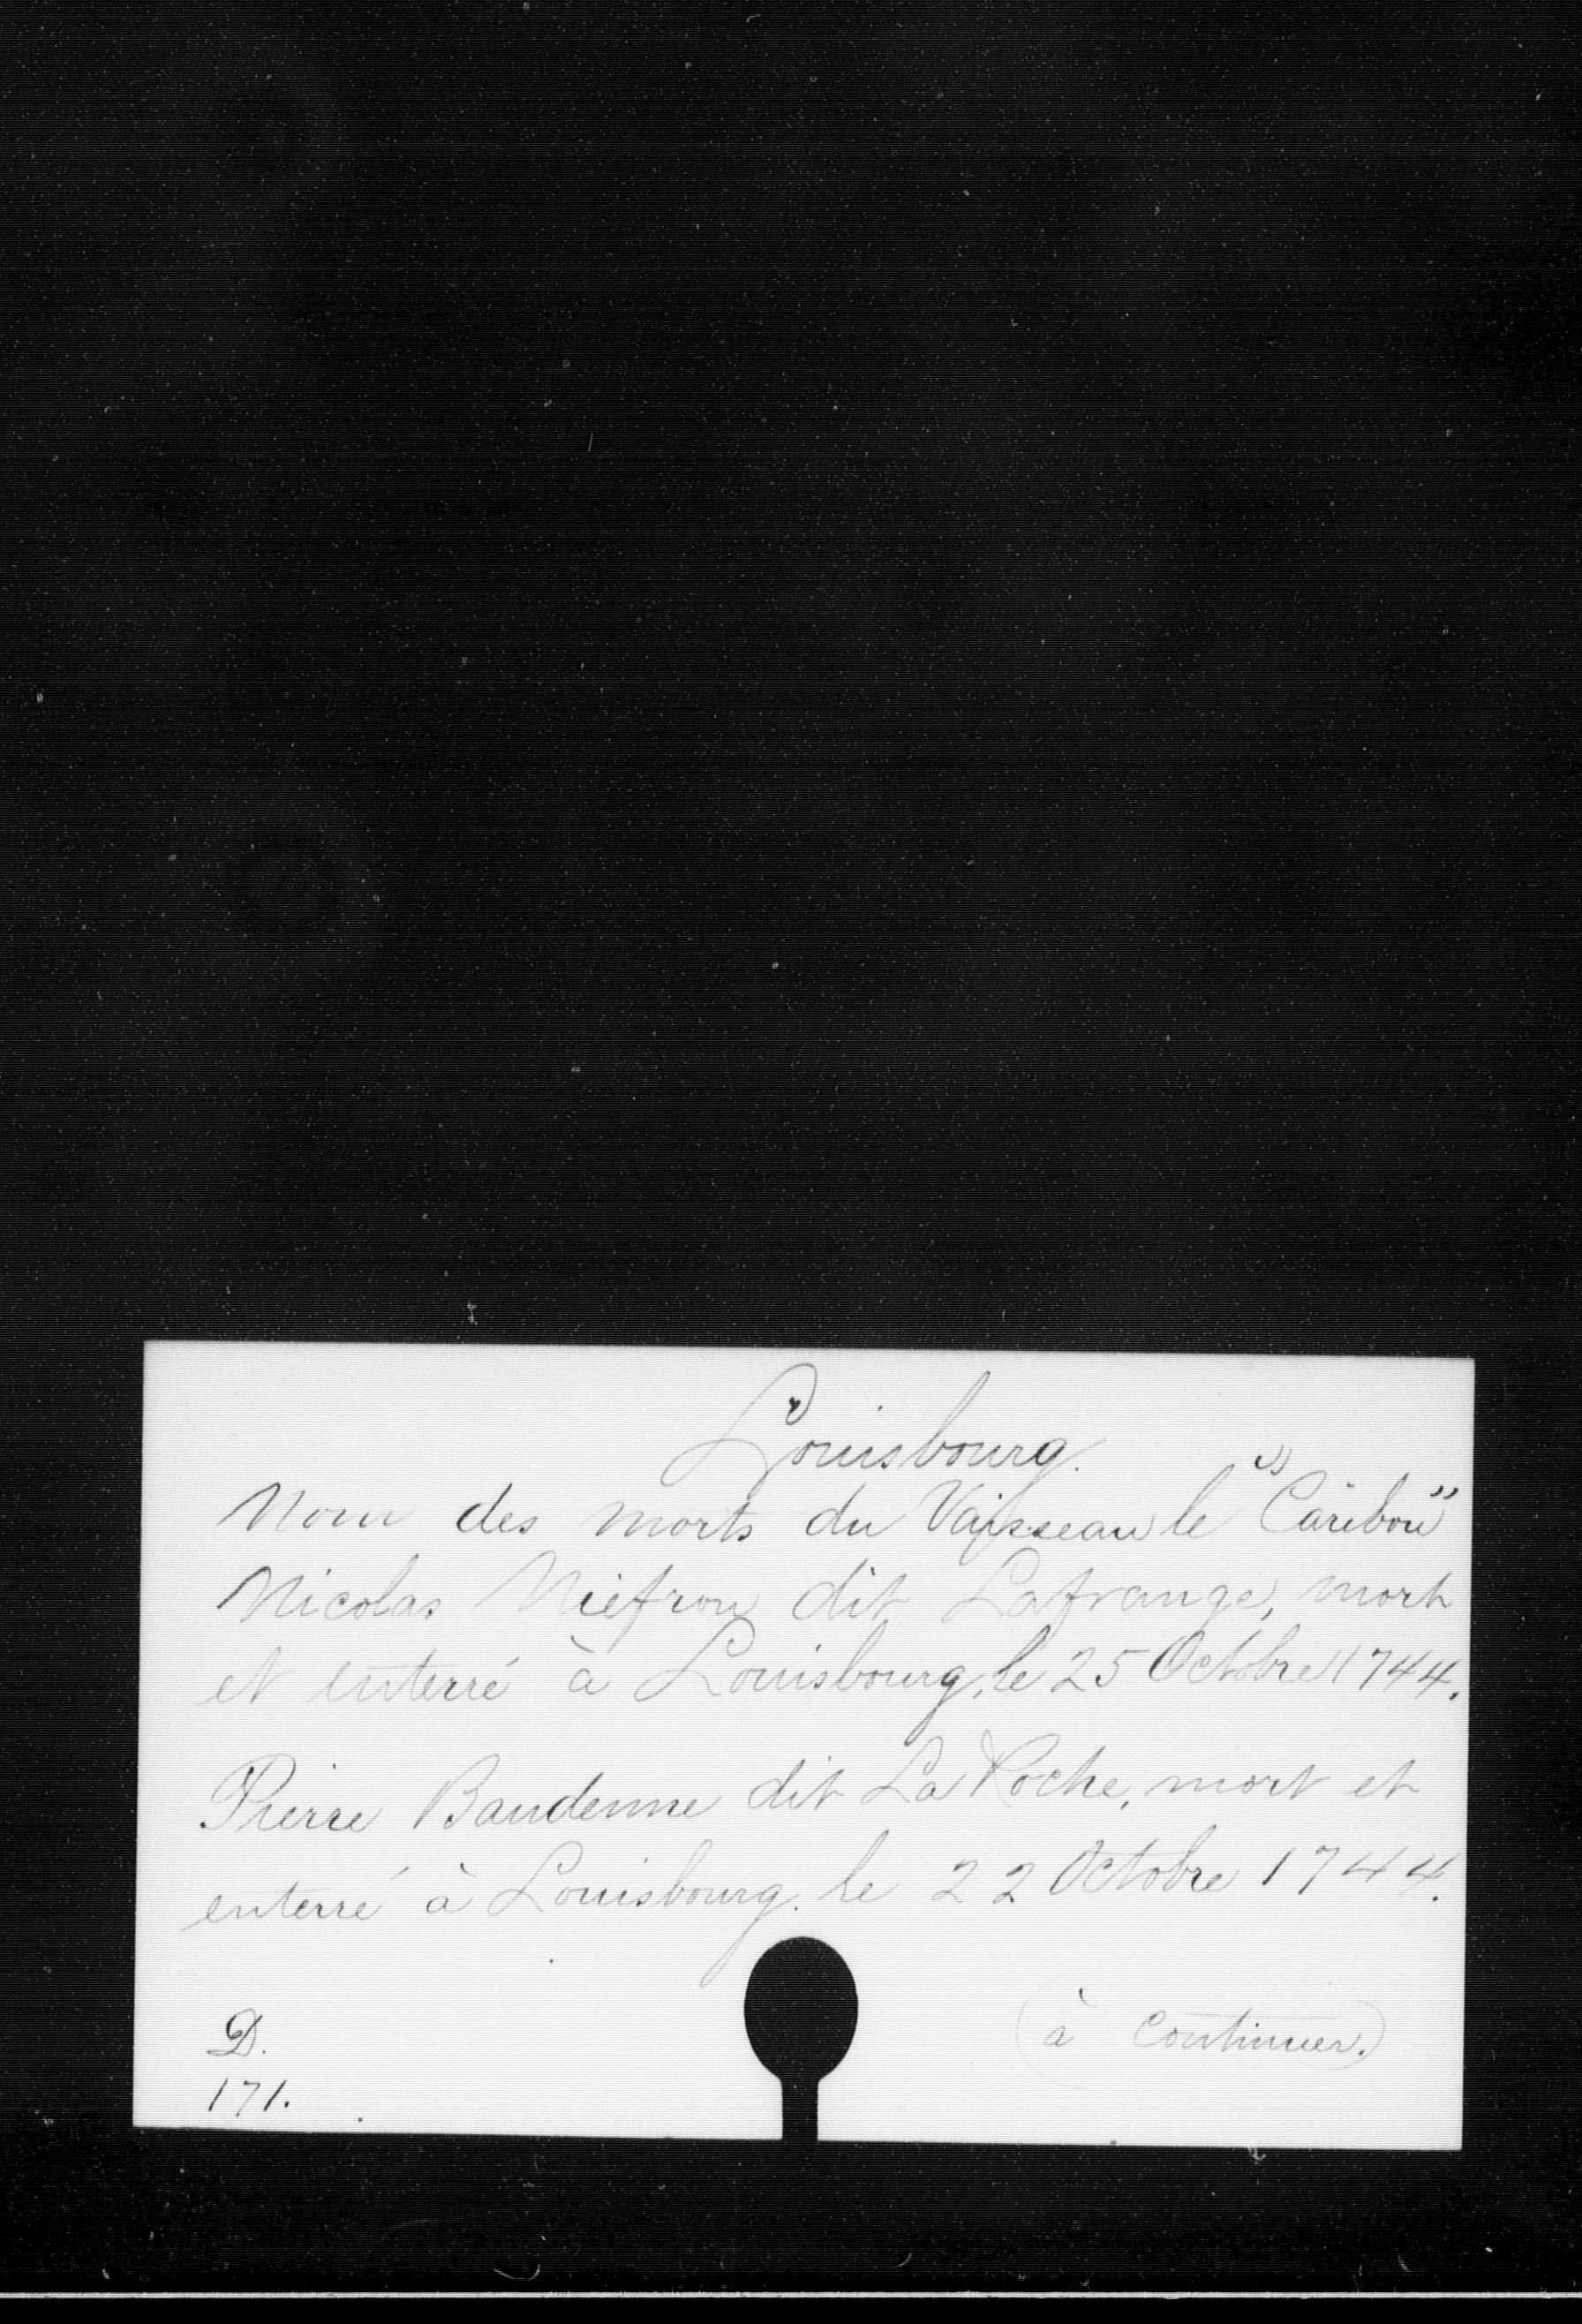 Louisbourg.
Nom des morts du Vaisseau le "Caribou"
Nicolas Niefron dit Lafrange, mort
et enterré à Louisbourg, le 25 Octobre 1744.
Pierre Baudenne dit La Roche, mort et
enterré à Louisbourg. le 22 Octobre 1744.
D. (à continuer.)
171.